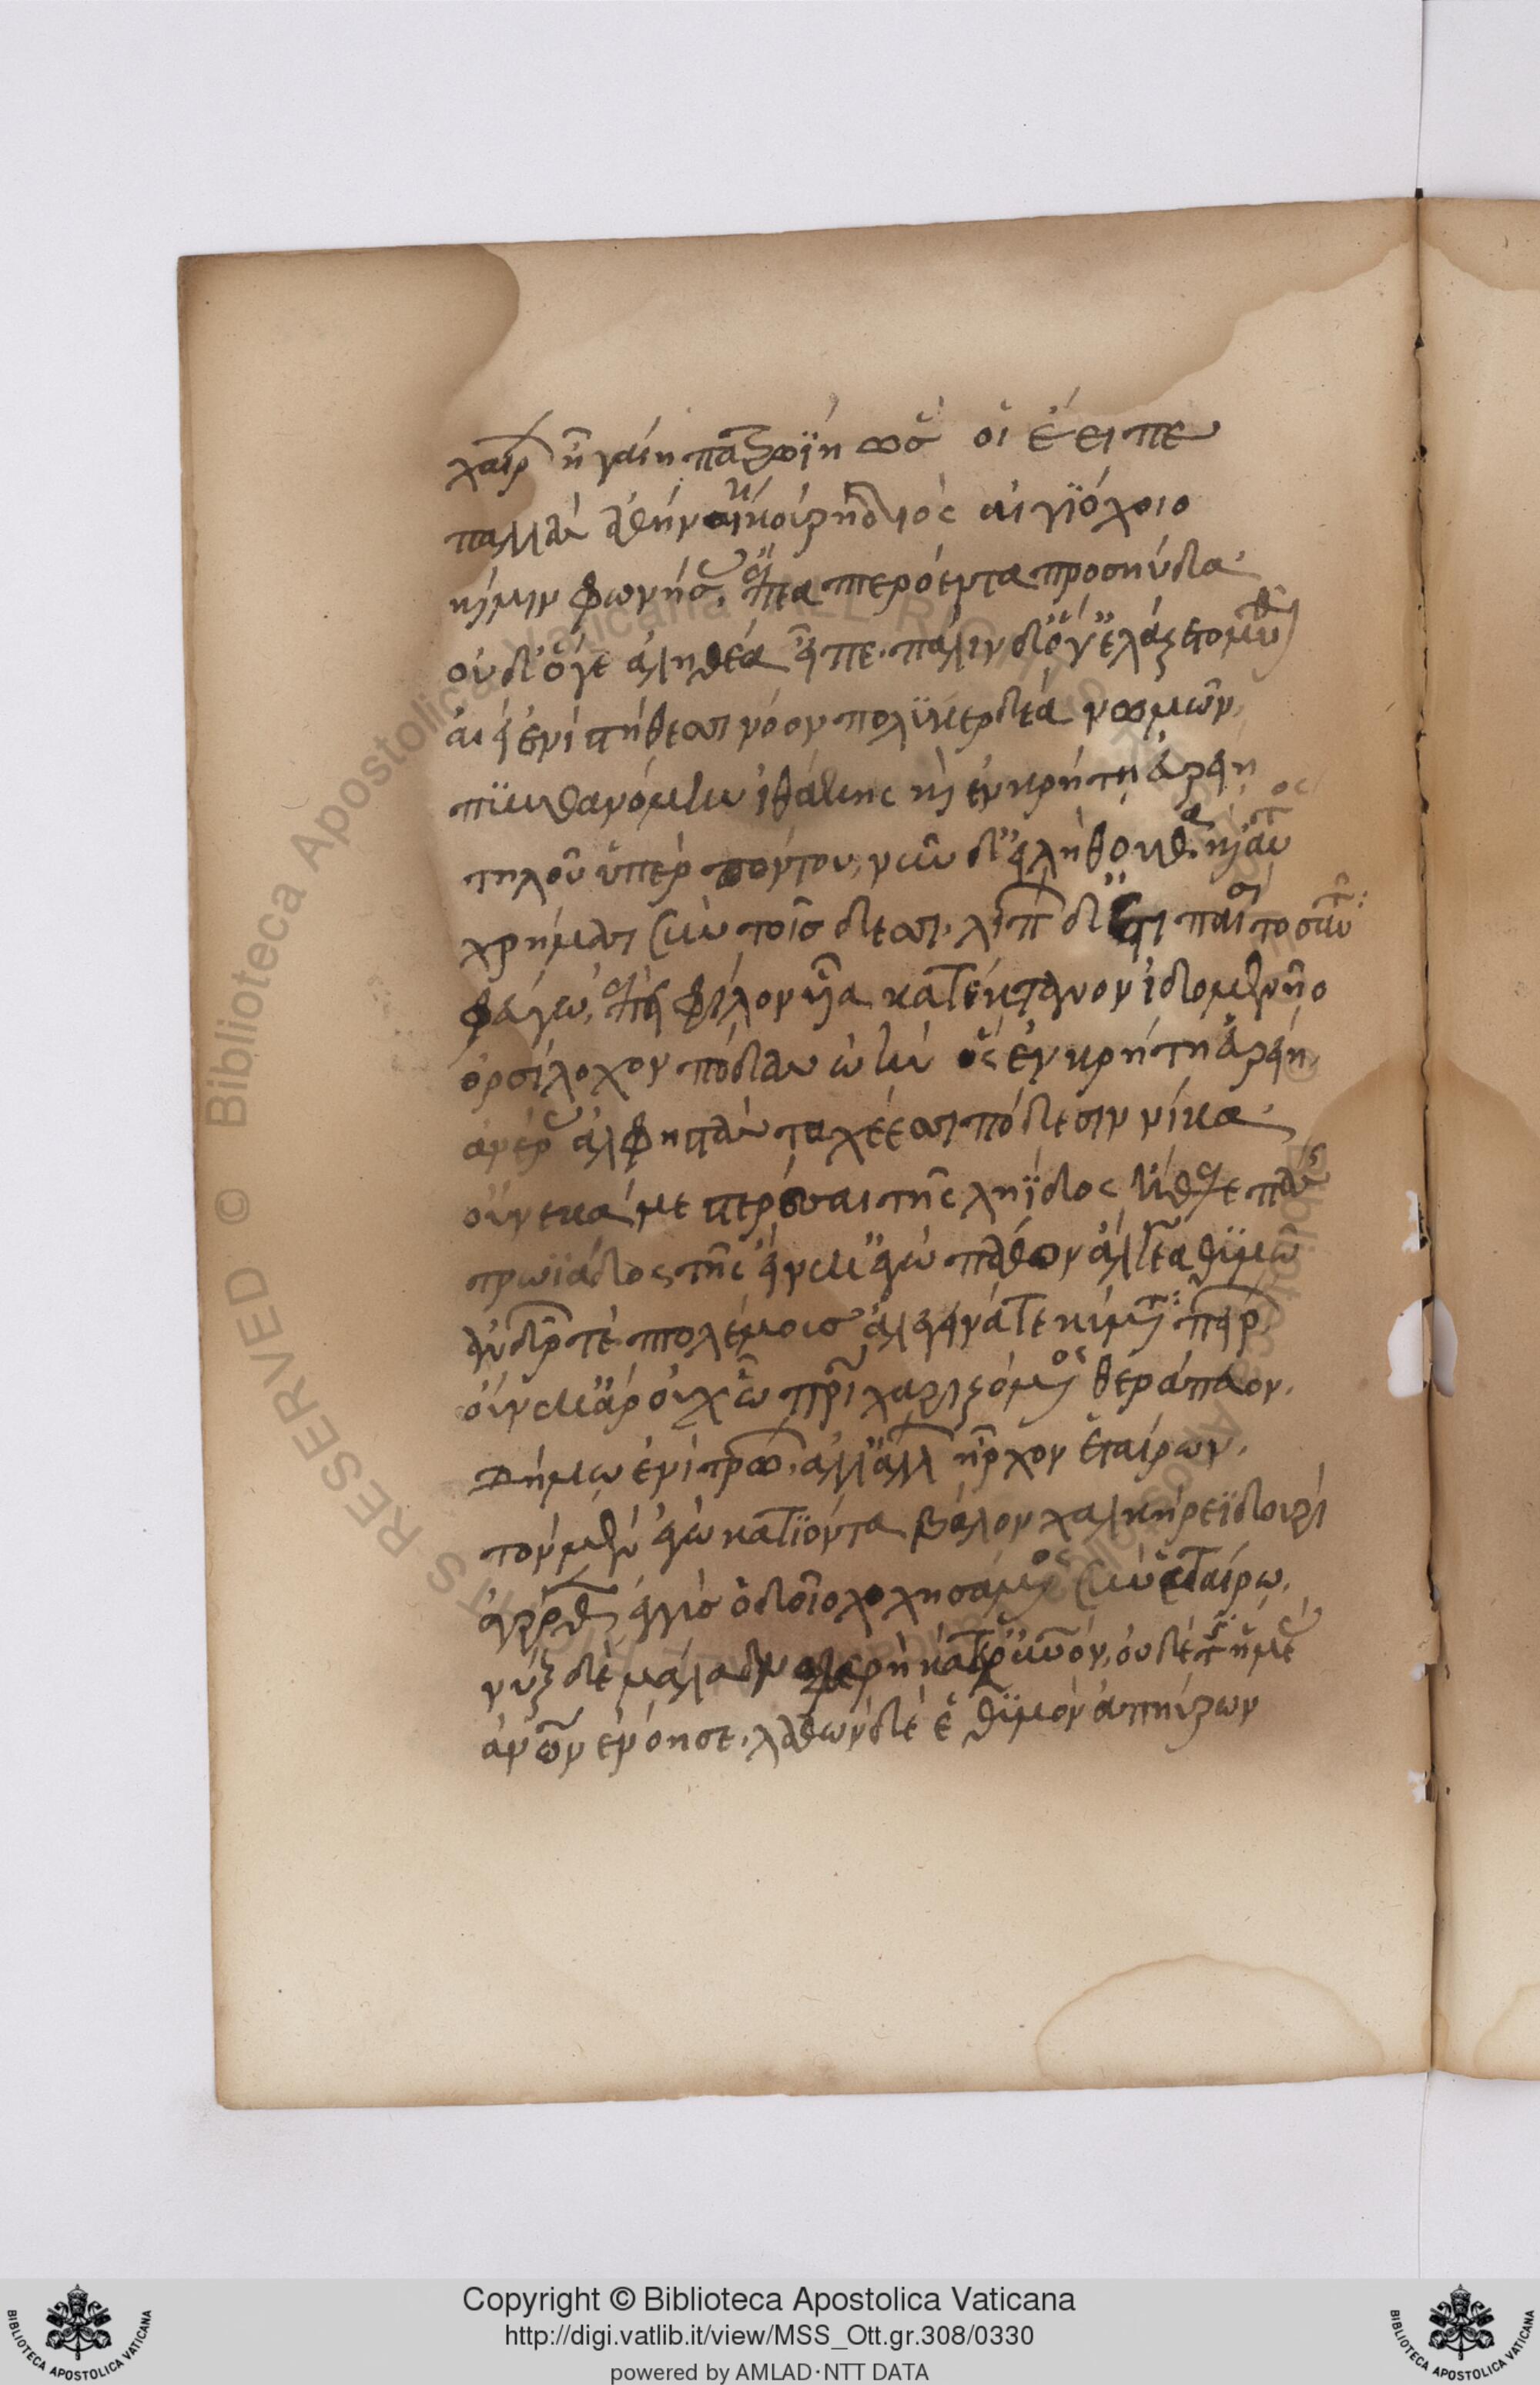 χαίρων ᾗ γαίῃ πατρωΐῃ ὥς οἱ ἔειπε
παλλὰς ἀθηναίη κούρη διὸς αἰγιόχοιο
καί μιν φωνήσας ἔπεα πτερόεντα προσηύδα·
οὐδ' ὅγε ἀληθέα εἶπε· πάλιν δ' ὅγ' ἐλάζετο μῦθον
αἰεὶ ἐνὶ στήθεσσι νόον πολυκερδέα νωμῶν·
πυνθανόμην ἰθάκης καὶ ἐν κρήτῃ εὐρείῃ
τηλοῦ ὑπὲρ πόντου, νῦν δ' εἰλήλουθα καὶ αὐτὸς
χρήμασι σὺν τοῖσδεσσι· λιπὼν δ' ἔτι παισὶ τοσαῦτα
φεύγω, ἐπεὶ φίλον υἷα κατέκτανον ἰδομενῆο
ὀρσίλοχον πόδας ὠκὺν ὃς ἐν κρήτῃ εὐρείῃ
ἀνέρας ἀλφηστὰς ταχέεσσι πόδεσιν νίκα·
οὕνεκά με στερέσαι τῆς ληΐδος ἤθελε πάσης
τρωϊάδος τῆς εἵνεκ' ἐγὼ πάθον ἄλγεα θυμῷ
ἀνδρῶν τε πτολέμους ἀλεγεινά τε κύματα πείρων
οὕνεκ' ἄρ' οὐχ ᾧ πατρὶ χαριζόμενος θεράπευον.
δήμῳ ἐνὶ τρώων, ἀλλ' ἄλλων ἦρχον ἑταίρων.
τὸν μὲν ἐγὼ κατιόντα βάλον χαλκήρεϊ δουρὶ
ἀγρόθεν ἐγγὺς ὁδοῖο λοχησάμενος σὺν ἑταίρῳ.
νὺξ δὲ μάλα δνοφερὴ κάτεχ' οὐρανόν, οὐδέ τις ἡμέας
ἀνθρώπων ἐνόησε. λάθον δέ ἑ θυμὸν ἀπηύρων
Copyright © Biblioteca Apostolica Vaticana
http://digi.vatlib.it/view/MSS_Ott.gr.308/0330
powered by AMLAD·NTT DATA